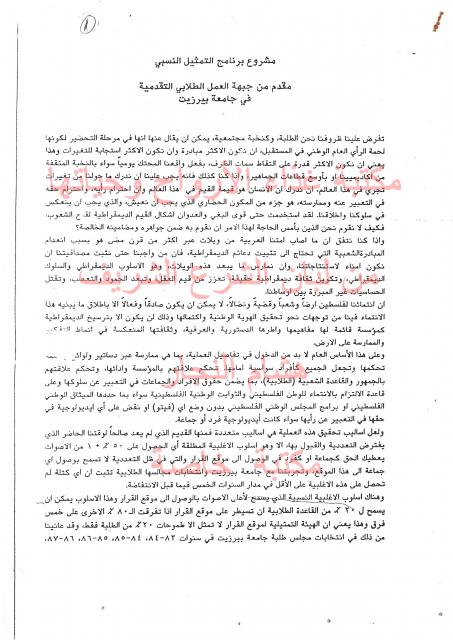 ١
مشروع برنامج التمثيل النسبي
مقدم من جبهة العمل الطلابي التقدمية
في جامعة بيرزيت
تفرض علينا ظروفنا نحن الطلبة، وكنخبة مجتمعية، يمكن ان يقال عنها انها في مرحلة التحضير لكونها
لحمة الرأي العام الوطني في المستقبل، ان نكون الاكثر مبادرة وان نكون الاكثر استجابة للتغيرات وهذا
يعني ان نكون الاكثر قدرة على التقاط سمات الظرف، بفعل واقعنا المحتك يوميا سواء بالنخبة المثقفة
من أكاديميينا او بأوسع قطاعات الجماهير، واذا كنا كذلك فانه يجب علينا ان ندرك ما حولنا من تغيرات
تجري في هذا العالم، ان ندرك ان الانسان هو قيمة القيم في هذا العالم وان احترام رأيه، واحترام حقه
في التعبير عنه وممارسته، هو جزء من المكون الحضاري الذي يجب ان نعيش، والذي يجب ان ينعكس
في سلوكنا واخلاقنا. لقد استخدمت حتى قوى البغي والعدوان اشكال القيم الديمقراطية لقمع الشعوب،
فكيف لا نقوم نحن الذين بأمس الحاجة لهذا الامر ان نقوم به ضمن جواهره ومضامينه الخالصة؟
واذا كنا نتفق ان ما اصاب امتنا العربية من ويلات عبر اكثر من قرن مضى هو بسبب انعدام
المبادرة الشعبية التي تحتاج الى تثبيت دعائم الديمقراطية، فان من واجبنا حتى نثبت مصداقيتنا ان
نكون امناء لاستنتاجاتنا، وان نمارس ما يبعد هذه الويلات، وهو الاسلوب الديمقراطي والسلوك
الديمقراطي، وتكوين ثقافة ديمقراطية حقيقية، تعزز من قيم العقل، وتبعد الجمود والتعصب، وتقتل
الحساسيات غير المبررة بين اوساطنا.
ان انتمائنا لفلسطين ارضاً وشعباً وقضية ونضالاً، لا يمكن ان يكون صادقاً وفعالاً الا باطلاق ما يبنيه هذا
الانتماء فينا من توجهات نحو تحقيق الهوية الوطنية واكتمالها وذلك لن يكون الا بترسيخ الديمقراطية
كمؤسسة قائمة لها مفاهيمها واطرها الدستورية والعرفية، وثقافتها المنعكسة في انماط التفكير
والممارسة على الارض.
وعلى هذا الأساس العام لا بد من الدخول في تفاصيل العملية، بما هي ممارسة عبر دساتير ولوائح
تحكمها وتجعل الجميع كأفراد سواسية امامها، تحكم علاقتهم بالمؤسسة وادائها، وتحكم علاقتهم
بالجمهور والقاعدة الشعبية (الطلابية)، بما يضمن حقوق الافراد والجماعات في التعبير عن سلوكها وعلى
قاعدة الالتزام بالانتماء للوطن الفلسطيني والثوابت الوطنية الفلسطينية سواء بما حددها الميثاق الوطني
الفلسطيني او برامج المجلس الوطني الفلسطيني بدون وضع اي (فيتو) او نقض على أي ايديولوجية في
حقها في التعبير عن رأيها سواء كانت أيديولوجية فرد أو جماعة.
ولعل اساليب تحقيق هذه العملية هي اساليب متعددة فمنها القديم الذي لم يعد صالحاً لوقتنا الحاضر الذي
يفترض التعددية والقبول بها، الا وهو اسلوب الاغلبية المطلقة أي الحصول على ٥٠٪ + ١ من الاصوات
يعطيك الحق كجماعة او كفرد في الوصول الى موقع القرار والتي في ظل التعددية لا تسمح بوصول اي
جماعة الى هذا الموقع، وتجربتنا مع جامعة بيرزيت وانتخابات مجالسها الطلابية تثبت ان اي كتلة لم
تحصل على هذه الاغلبية على الأقل في مدار السنوات الخمس قيما قبل الانتفاضة.
وهناك اسلوب الاغلبية النسبية الذي يسمح لأعلى الاصوات بالوصول الى موقع القرار وهذا الاسلوب يمكن ان
يسمح ل ٢٠٪ من القاعدة الطلابية ان تسيطر على موقع القرار اذا تفرقت ال ٨٠٪ الاخرى على خمس
فرق وهذا يعني ان الهيئة التمثيلية لموقع القرار لا تمثل الا طموحات ٢٠٪ من الطلبة فقط، وقد عانينا
من ذلك في انتخابات مجلس طلبة جامعة بيرزيت في سنوات ٨٣-٨٤، ٨٤-٨٥، ٨٥-٨٦، ٨٦-٨٧،